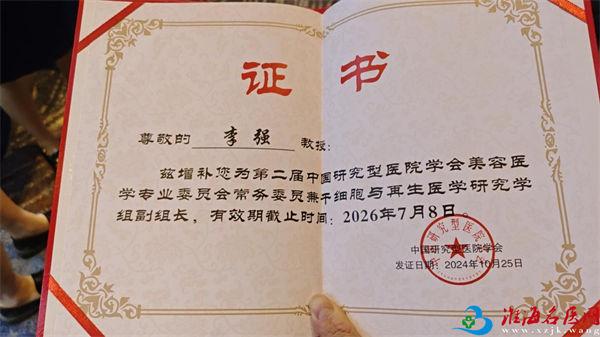 证书
尊敬的 李强 教授:
兹增补您为第二届中国研究型医院学会美容医
学专业委员会常务委员兼干细胞与再生医学研究学
组副组长，有效期截止时间：2026年7月8日。
中国研究型医院学会
发证日期：2024年10月25日
淮海名医网
www.xzjk.wang